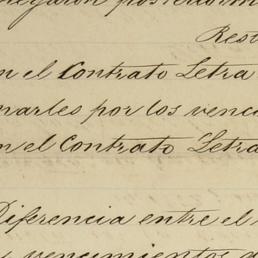 Rest
n el Contrato Letra
narles por los venci
n el Contrato Letra
Diferencia entre el
vencimientos d